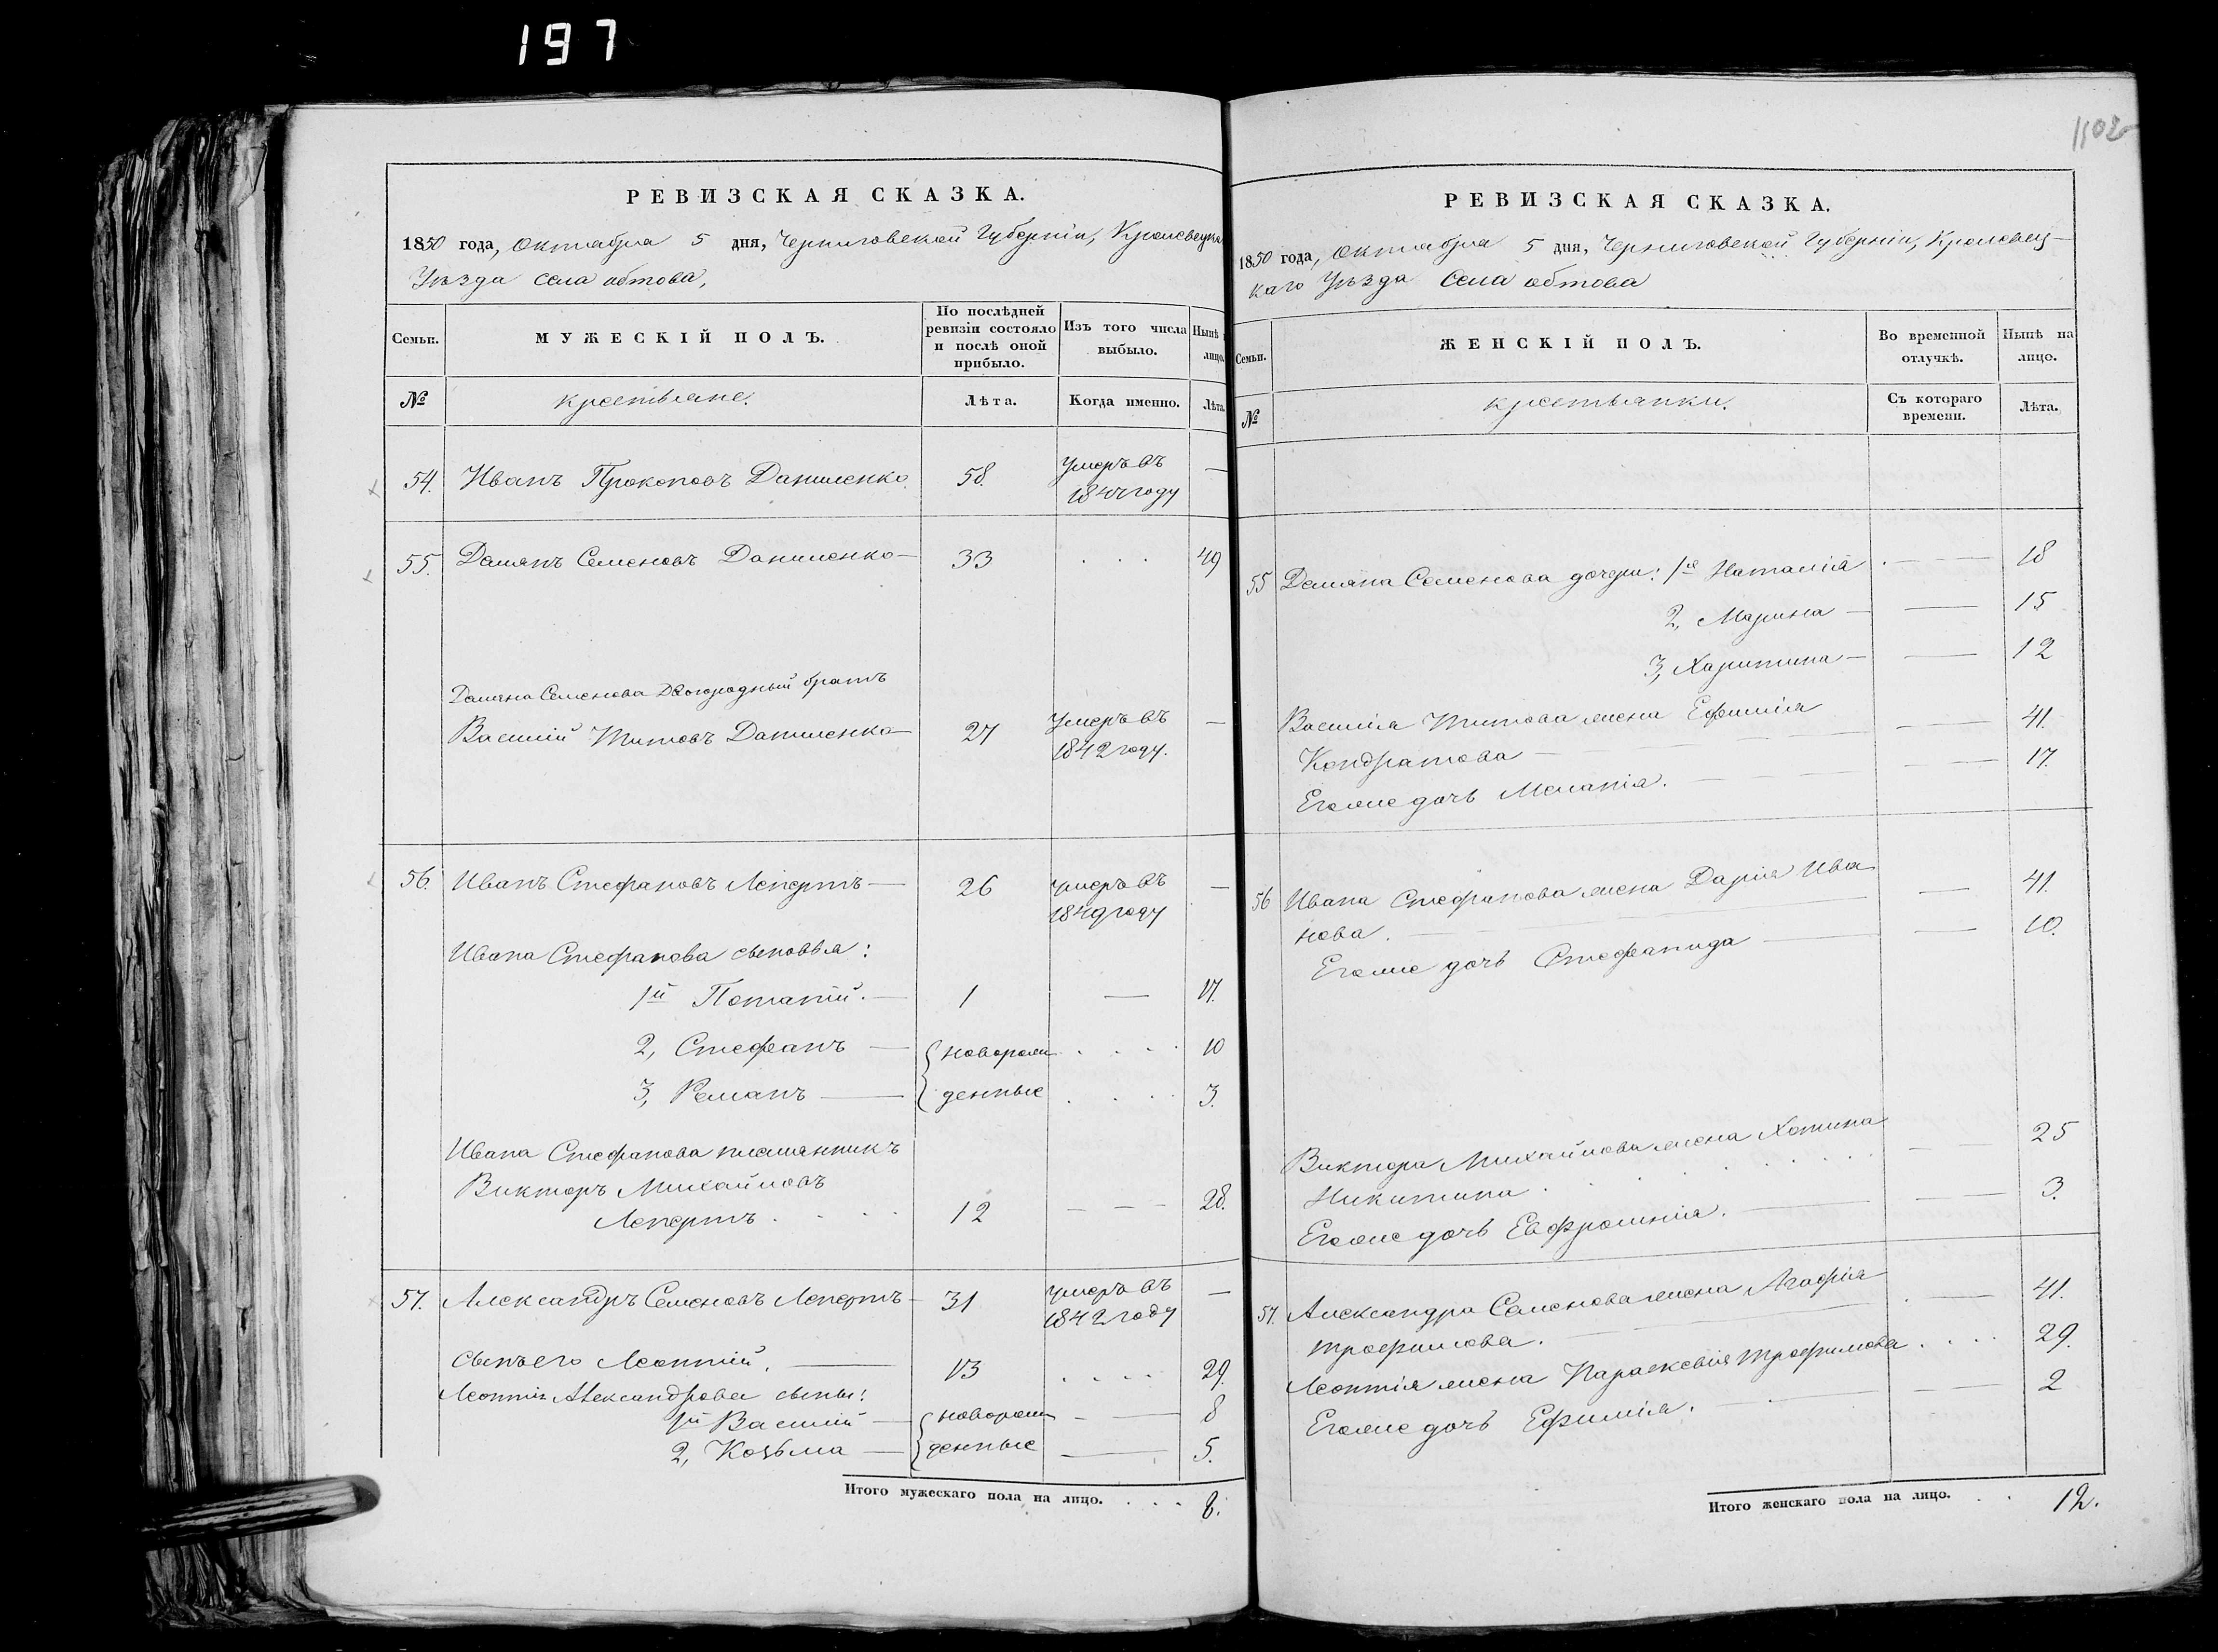 197
1102
РЕВИЗСКАЯ СКАЗКА.
1850 года, Октября 5 дня, Черниговской Губерніи, Кролевецка
Уѣзда Села обтова,
Семьи.
МУЖЕСКІЙ ПОЛЪ.
По послѣдней
ревизіи состояло
и послѣ оной
прибыло.
Изъ того числа
выбыло.
Нынѣ
лицо.
№
крестьяне.
Лѣта.
Когда именно.
Лѣта.
54. Иванъ Прокоповъ Даниленко. 58. Умеръ въ —
году
55. Демянъ Семеновъ Даниленко — 33 . . . 49
Демяна Семенова Двоюродный братъ
Василій Титовъ Даниленко — 27 Умеръ въ —
1842 году.
56. Иванъ Стефановъ Лепертъ — 26 умеръ въ —
1849 году
Ивана Стефанова сыновья:
1й Потапій. — 1 — 17.
2, Стефанъ — новорож . . . . 10
3, Романъ — денные . . . . 3.
Ивана Стефанова племянникъ
Викторъ Михайловъ
Лепертъ . . . . 12 — — — 28.
57. Александръ Семеновъ Лепертъ — 31 умеръ въ —
1842 году
Сынъ его Леонтій. — 13 . . . . 29.
Леонтія Александрова сыны:
1й Василій — новорож — — 8
2, Козьма — денные — 5.
Итого мужескаго пола на лицо. . . . 8.
РЕВИЗСКАЯ СКАЗКА.
1850 года, Октября 5 дня, Черниговской Губерніи, Кролевец-
каго Уѣзда Села обтова
Семьи.
ЖЕНСКІЙ ПОЛЪ.
Во временной
отлучкѣ.
Нынѣ на
лицо.
№
крестьянки.
Съ котораго
времени.
Лѣта.
55 Демяна Семенова дочери: 1я Наталія . — — 18
2, Марина — — 15
3, Харитина — — 12
Василія Титова жена Ефимія — — 41.
Кондратова —
Егоже дочь Меланія. — — 17.
56 Ивана Стефанова жена Дарія Ива — 41.
нова. —
Егоже дочь Стефанида — — 10.
Виктора Михайлова жена Хотина — — 25
Никитина . . . . . .
Егоже дочь Евфросинія. — — — 3.
57. Александра Семенова жена Агафія . — 41.
трофимова. —
Леонтія жена Параскевія трофимова . . . . 29.
Егоже дочь Ефимія. — — — 2
Итого женскаго пола на лицо. . . 12.